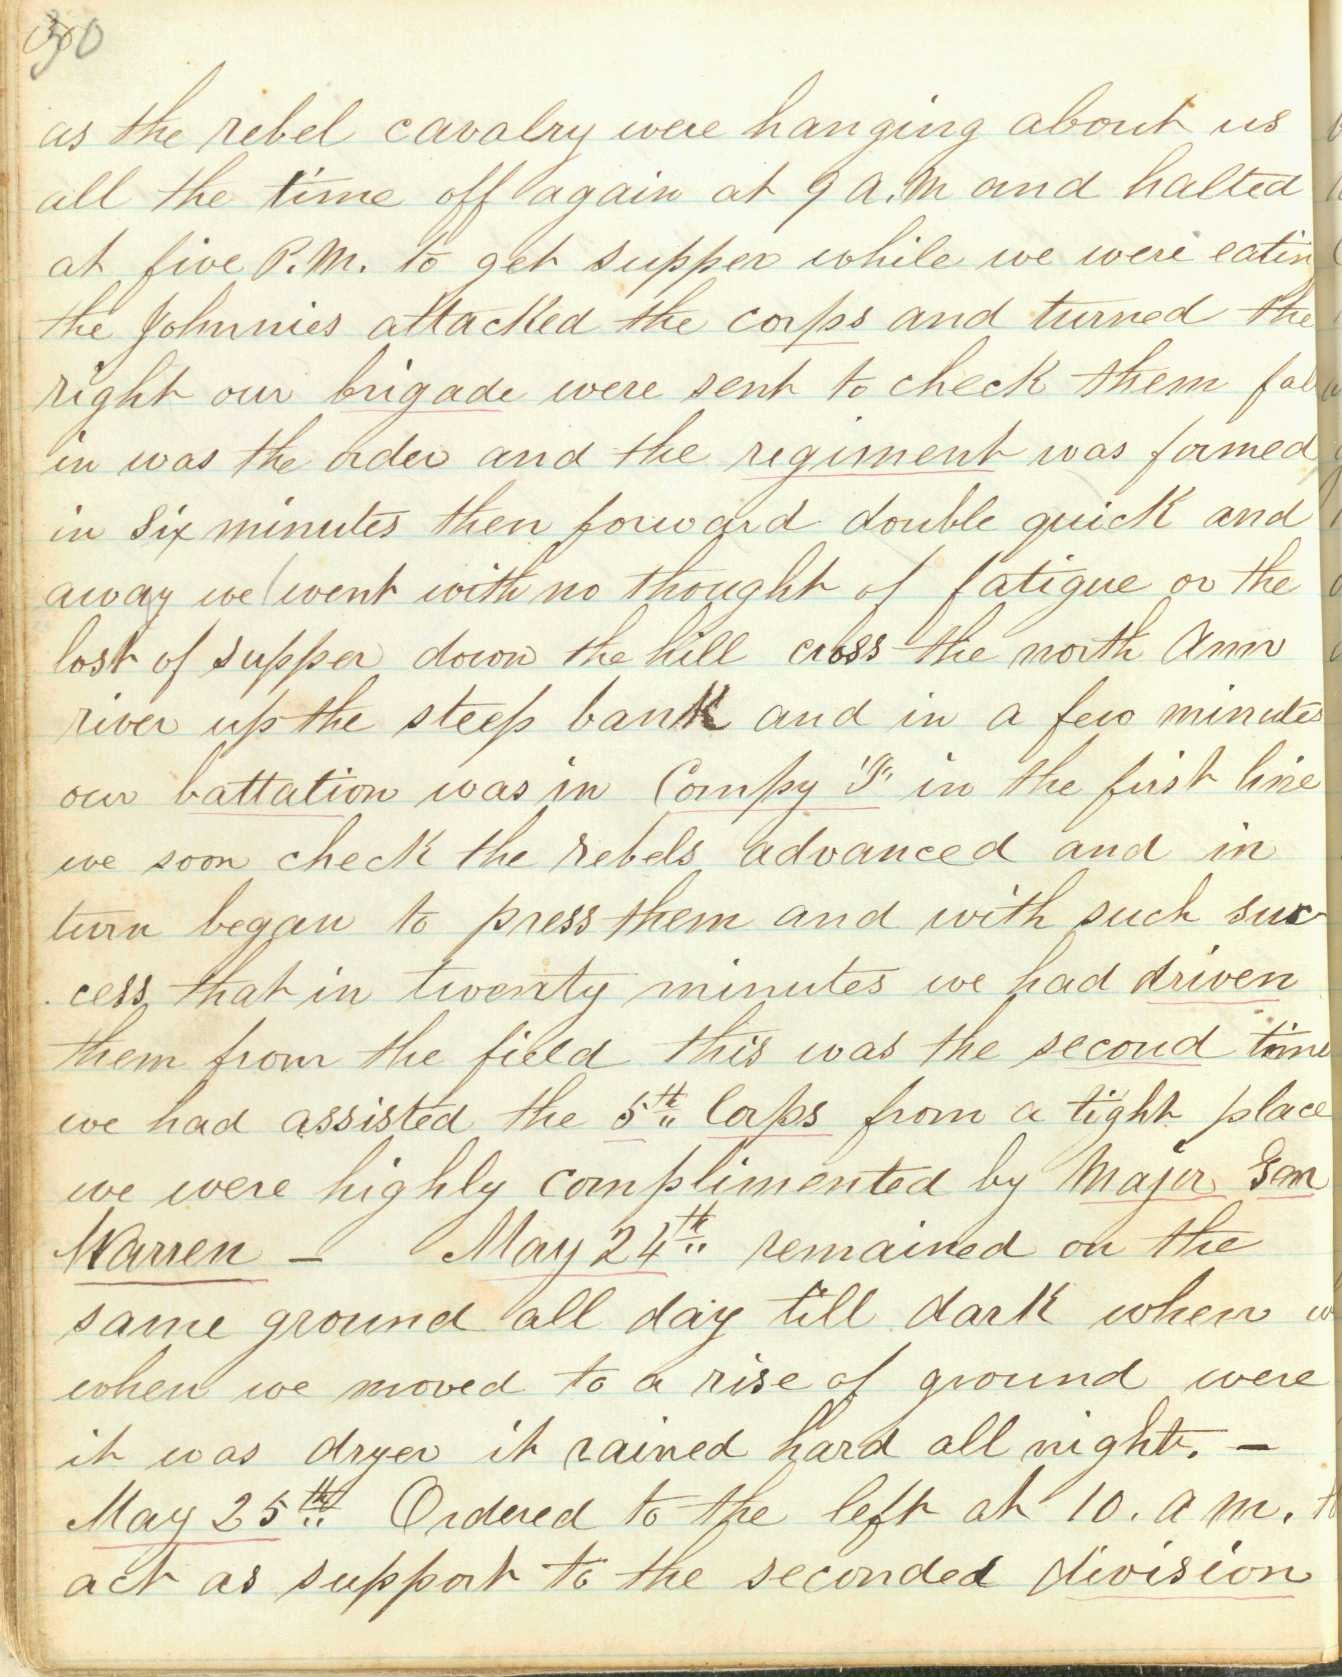 30
as the rebel cavalry were hanging about us
all the time off again at 9 A.M and halted
at five P.M. to get supper while we were eatin
the Johnnies attacked the corps and turned the
right our brigade were sent to check them fal
in was the order and the regiment was formed
in six minutes then forward double quick and
away we went with no thought of fatigue or the
lost of supper down the hill cross the north Ann
river up the steep bank and in a few minutes
our battation was in Compy "F" in the first line
we soon check the rebels advanced and in
turn began to press them and with such suc-
cess that in twenty minutes we had driven
them from the field this was the second time
we had assisted the 5th Corps from a tight place
we were highly complimented by Major Gen
Warren — May 24th remained on the
same ground all day till dark when w
when we moved to a rise of ground were
it was dryer it rained hard all night. —
May 25th Ordered to the left at 10. A M. to
act as support to the seconded division